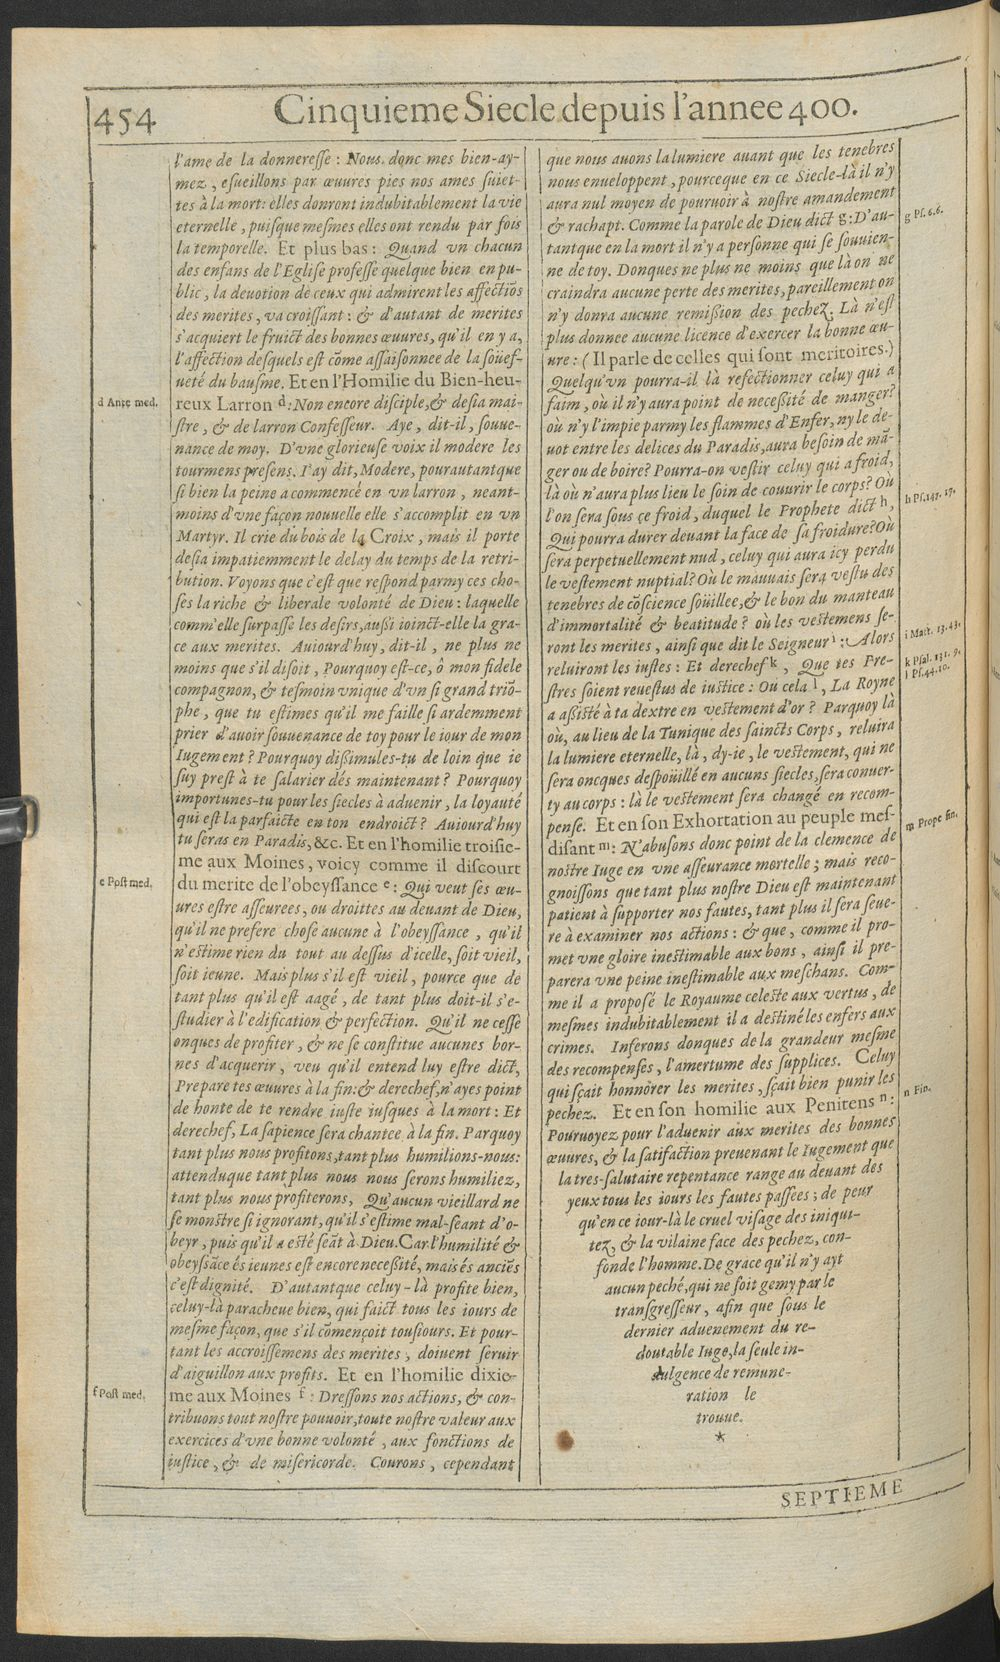 454
Cinquieme Siecle depuis l'annee 400.
l'ame de la donneresse : Nous donc mes bien-ay-
mez, esueillons par œuures pies nos ames suiet-
tes à la mort: elles donront indubitablement la vie
eternelle, puisque mesmes elles ont rendu par fois
la temporelle. Et plus bas : Quand vn chacun
des enfans de l'Eglise professe quelque bien en pu-
blic, la deuotion de ceux qui admirent les affectiōs
des merites, va croissant : & d'autant de merites
s'acquiert le fruict des bonnes œuures, qu'il en y a,
l'affection desquels est cōme assaisonnee de la soüef-
ueté du bausme. Et en l'Homilie du Bien-heu-
d Ante med.
reux Larron d: Non encore disciple, & desia mai-
stre, & de larron Confesseur. Aye, dit-il, souue-
nance de moy. D'vne glorieuse voix il modere les
tourmens presens. I'ay dit, Modere, pourautantque
si bien la peine a commencé en vn larron, neant-
moins d'vne façon nouuelle elle s'accomplit en vn
Martyr. Il crie du bois de la Croix, mais il porte
desia impatiemment le delay du temps de la retri-
bution. Voyons que c'est que respond parmy ces cho-
ses la riche & liberale volonté de Dieu : laquelle
comm'elle surpasse les desirs, aussi ioinct-elle la gra-
ce aux merites. Auiourd'huy, dit-il, ne plus ne
moins que s'il disoit, Pourquoy est-ce, ô mon fidele
compagnon, & tesmoin vnique d'vn si grand triō-
phe, que tu estimes qu'il me faille si ardemment
prier d'auoir souuenance de toy pour le iour de mon
Iugement ? Pourquoy dissimules-tu de loin que ie
suy prest à te salarier dés maintenant ? Pourquoy
importunes-tu pour les siecles à aduenir, la loyauté
qui est la parfaicte en ton endroict ? Auiourd'huy
tu seras en Paradis, &c. Et en l'homilie troisie-
me aux Moines, voicy comme il discourt
e Post med.
du merite de l'obeyssance e: Qui veut ses œu-
ures estre asseurees, ou droittes au deuant de Dieu,
qu'il ne prefere chose aucune à l'obeyssance, qu'il
n'estime rien du tout au dessus d'icelle, soit vieil,
soit ieune. Mais plus s'il est vieil, pource que de
tant plus qu'il est aagé, de tant plus doit-il s'e-
studier à l'edification & perfection. Qu'il ne cesse
onques de profiter, & ne se constitue aucunes bor-
nes d'acquerir, veu qu'il entend luy estre dict,
Prepare tes œuures à la fin: & derechef, n'ayes point
de honte de te rendre iuste iusques à la mort : Et
derechef, La sapience sera chantee à la fin. Parquoy
tant plus nous profitons, tant plus humilions-nous:
attenduque tant plus nous nous serons humiliez,
tant plus nous profiterons, Qu'aucun vieillard ne
se monstre si ignorant, qu'il s'estime mal-seant d'o-
beyr, puis qu'il a esté seāt à Dieu. Car l'humilité &
obeyssāce és ieunes est encore necessité, mais és anciēs
c'est dignité. D'autantque celuy-là profite bien,
celuy-là paracheue bien, qui faict tous les iours de
mesme façon, que s'il cōmençoit tousiours. Et pour-
tant les accroissemens des merites, doiuent seruir
d'aiguillon aux profits. Et en l'homilie dixie-
f Post med.
me aux Moines f : Dressons nos actions, & con-
tribuons tout nostre pouuoir, toute nostre valeur aux
exercices d'vne bonne volonté, aux fonctions de
iustice, & de misericorde. Courons, cependant
que nous auons la lumiere auant que les tenebres
nous enueloppent, pourceque en ce Siecle-là il n'y
aura nul moyen de pouruoir à nostre amandement
g Ps. 6.6.
& rachapt. Comme la parole de Dieu dict g: D'au-
tantque en la mort il n'y a personne qui se souuien-
ne de toy. Donques ne plus ne moins que là on ne
craindra aucune perte des merites, pareillement on
n'y donra aucune remission des pechez. Là n'est
plus donnee aucune licence d'exercer la bonne œu-
ure : ( Il parle de celles qui sont meritoires.)
Quelqu'vn pourra-il là refectionner celuy qui a
faim, où il n'y aura point de necessité de manger?
où n'y l'impie parmy les flammes d'Enfer, ny le de-
uot entre les delices du Paradis, aura besoin de mā-
ger ou de boire? Pourra-on vestir celuy qui a froid,
là où n'aura plus lieu le soin de couurir le corps? Où
h Ps. 147. 17.
l'on sera sous ce froid, duquel le Prophete dict h,
Qui pourra durer deuant la face de sa froidure? Où
sera perpetuellement nud, celuy qui aura icy perdu
le vestement nuptial? Où le mauuais sera vestu des
tenebres de cōscience soüillee, & le bon du manteau
d'immortalité & beatitude? où les vestemens se-
i Matt. 13.43.
ront les merites, ainsi que dit le Seigneur i: Alors
k Psal. 131. 9.
reluiront les iustes : Et derechef k, Que tes Pre-
l Ps. 44.10.
stres soient reuestus de iustice : Où cela l, La Royne
a assisté à ta dextre en vestement d'or ? Parquoy là
où, au lieu de la Tunique des saincts Corps, reluira
la lumiere eternelle, là, dy-ie, le vestement, qui ne
sera oncques despoüillé en aucuns siecles, sera conuer-
ty au corps : là le vestement sera changé en recom-
m Prope fin.
pense. Et en son Exhortation au peuple mes-
disant m: N'abusons donc point de la clemence de
nostre Iuge en vne asseurance mortelle ; mais reco-
gnoissons que tant plus nostre Dieu est maintenant
patient à supporter nos fautes, tant plus il sera seue-
re à examiner nos actions : & que, comme il pro-
met vne gloire inestimable aux bons, ainsi il pre-
parera vne peine inestimable aux meschans. Com-
me il a proposé le Royaume celeste aux vertus, de
mesmes indubitablement il a destiné les enfers aux
crimes. Inferons donques de la grandeur mesme
des recompenses, l'amertume des supplices. Celuy
qui sçait honnorer les merites, sçait bien punir les
n Fin.
pechez. Et en son homilie aux Penitens n:
Pouruoyez pour l'aduenir aux merites des bonnes
œuures, & la satifaction preuenant le Iugement que
la tres-salutaire repentance range au deuant des
yeux tous les iours les fautes passees ; de peur
qu'en ce iour-là le cruel visage des iniqui-
tez, & la vilaine face des pechez, con-
fonde l'homme. De grace qu'il n'y ayt
aucun peché, qui ne soit gemy par le
transgresseur, afin que sous le
dernier aduenement du re-
doutable Iuge, la seule in-
dulgence de remune-
ration le
trouue.
*
SEPTIEME